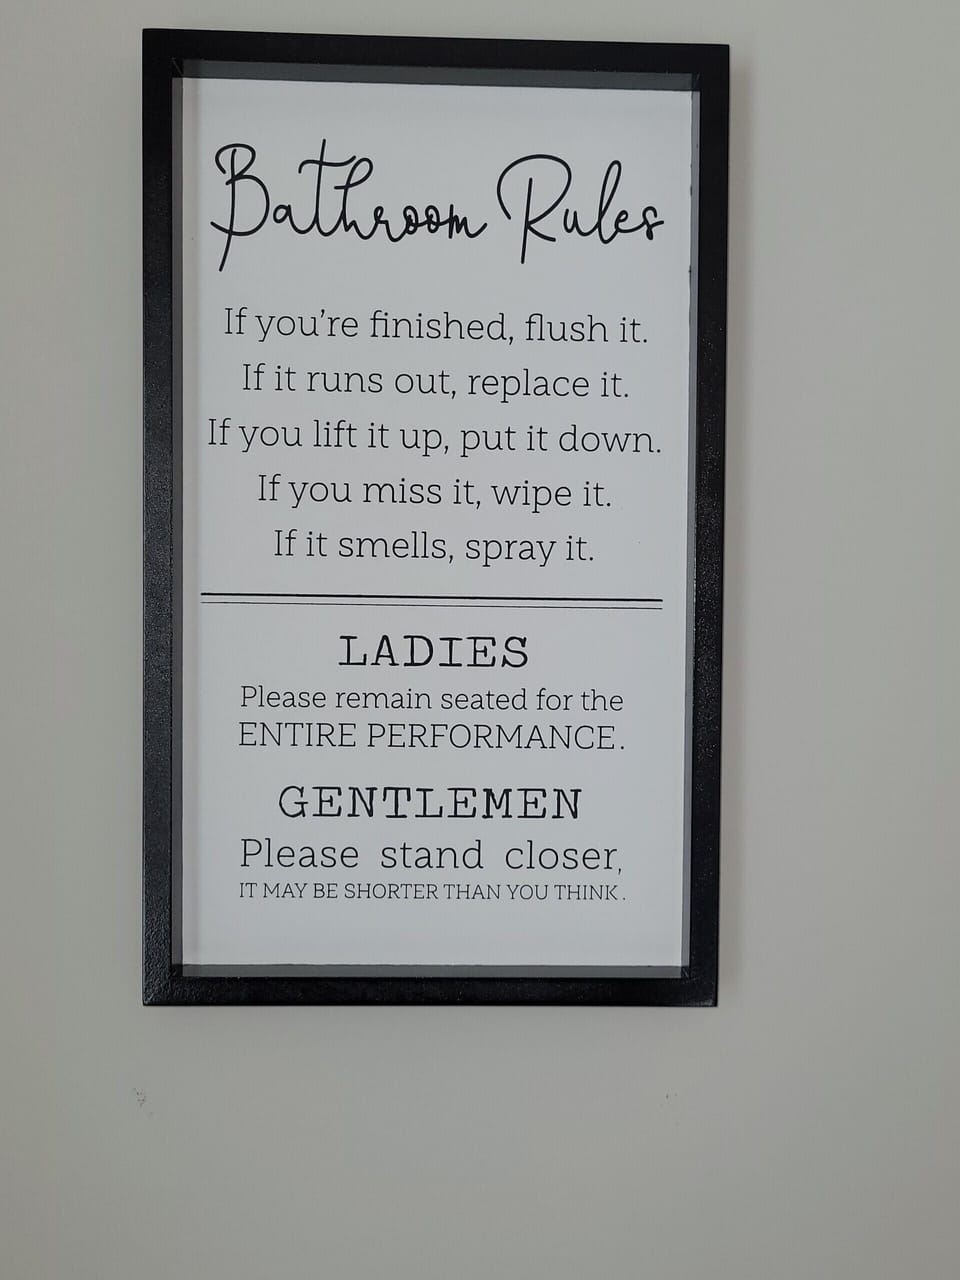 Bathroom Rules
If you're finished, flush it.
If it runs out, replace it.
If you lift it up, put it down.
If you miss it, wipe it.
If it smells, spray it.
LADIES
Please remain seated for the
ENTIRE PERFORMANCE.
GENTLEMEN
Please stand closer,
IT MAY BE SHORTER THAN YOU THINK.